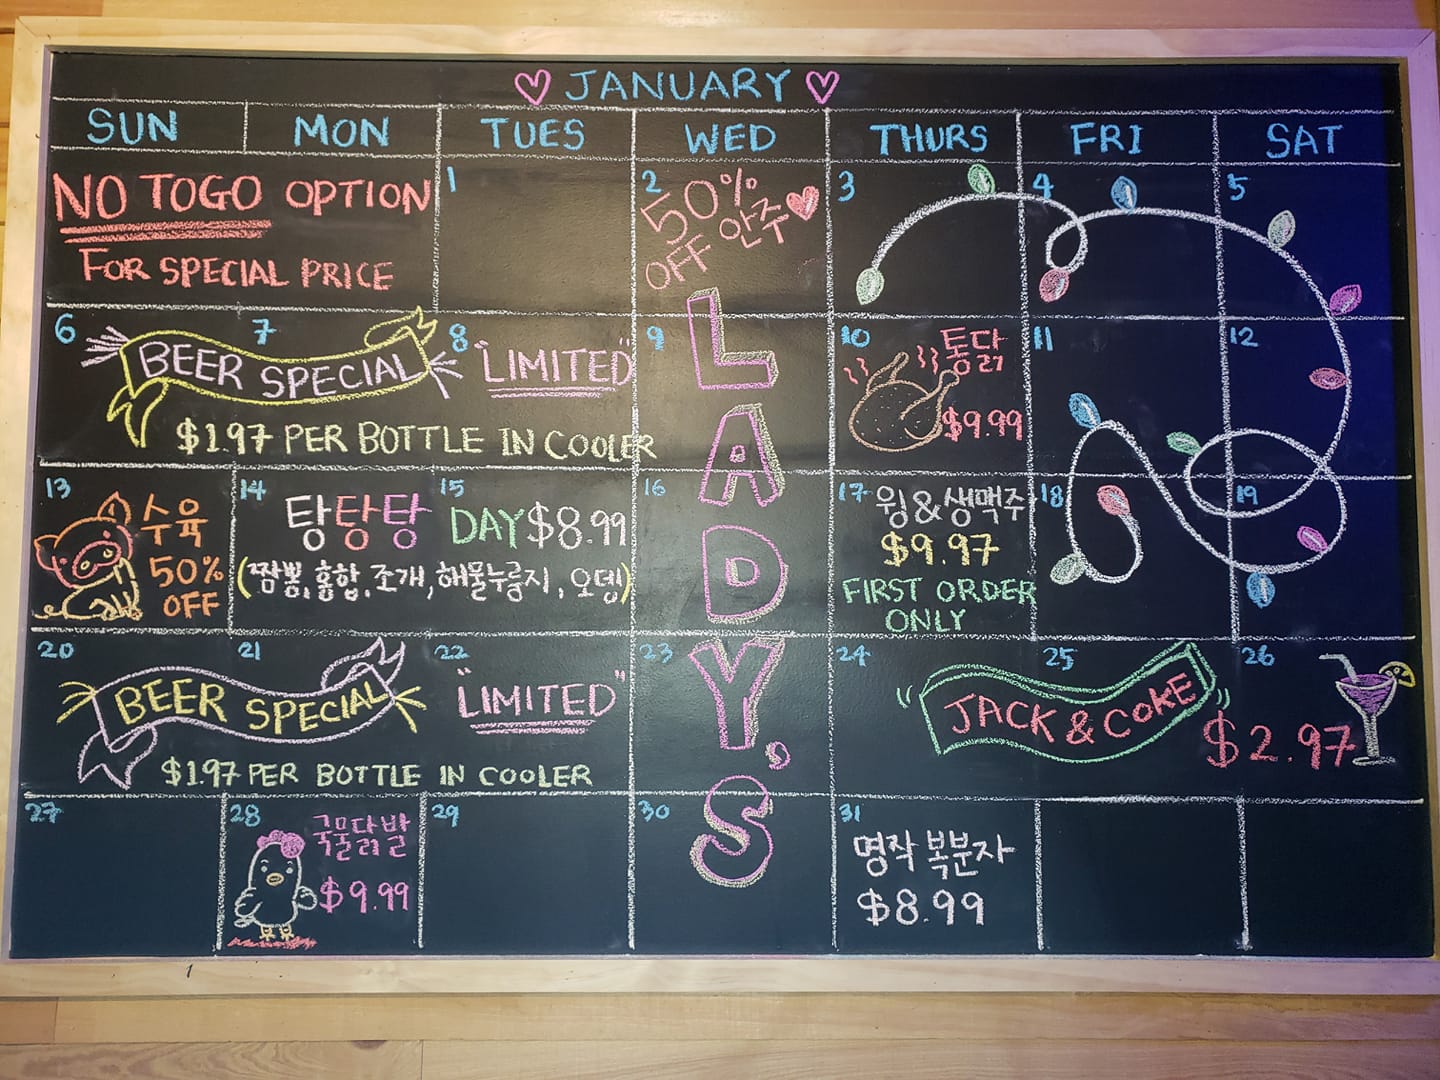 JANUARY
SUN MON TUES WED THURS FRI SAT
NO TOGO OPTION
FOR SPECIAL PRICE
1
2
50%
OFF 안주
3
4
5
6
7
8
BEER SPECIAL
"LIMITED"
$1.97 PER BOTTLE IN COOLER
9
10
통닭
$9.99
11
12
13
수육
50%
OFF
14
15
탕탕탕 DAY $8.99
(짬뽕, 홍합, 조개, 해물누룽지, 오뎅)
16
17
윙&생맥주
$9.97
FIRST ORDER
ONLY
18
19
20
21
22
BEER SPECIAL
"LIMITED"
$1.97 PER BOTTLE IN COOLER
23
LADY'S
24
25
26
JACK & COKE
$2.97
27
28
국물닭발
$9.99
29
30
31
명작 복분자
$8.99